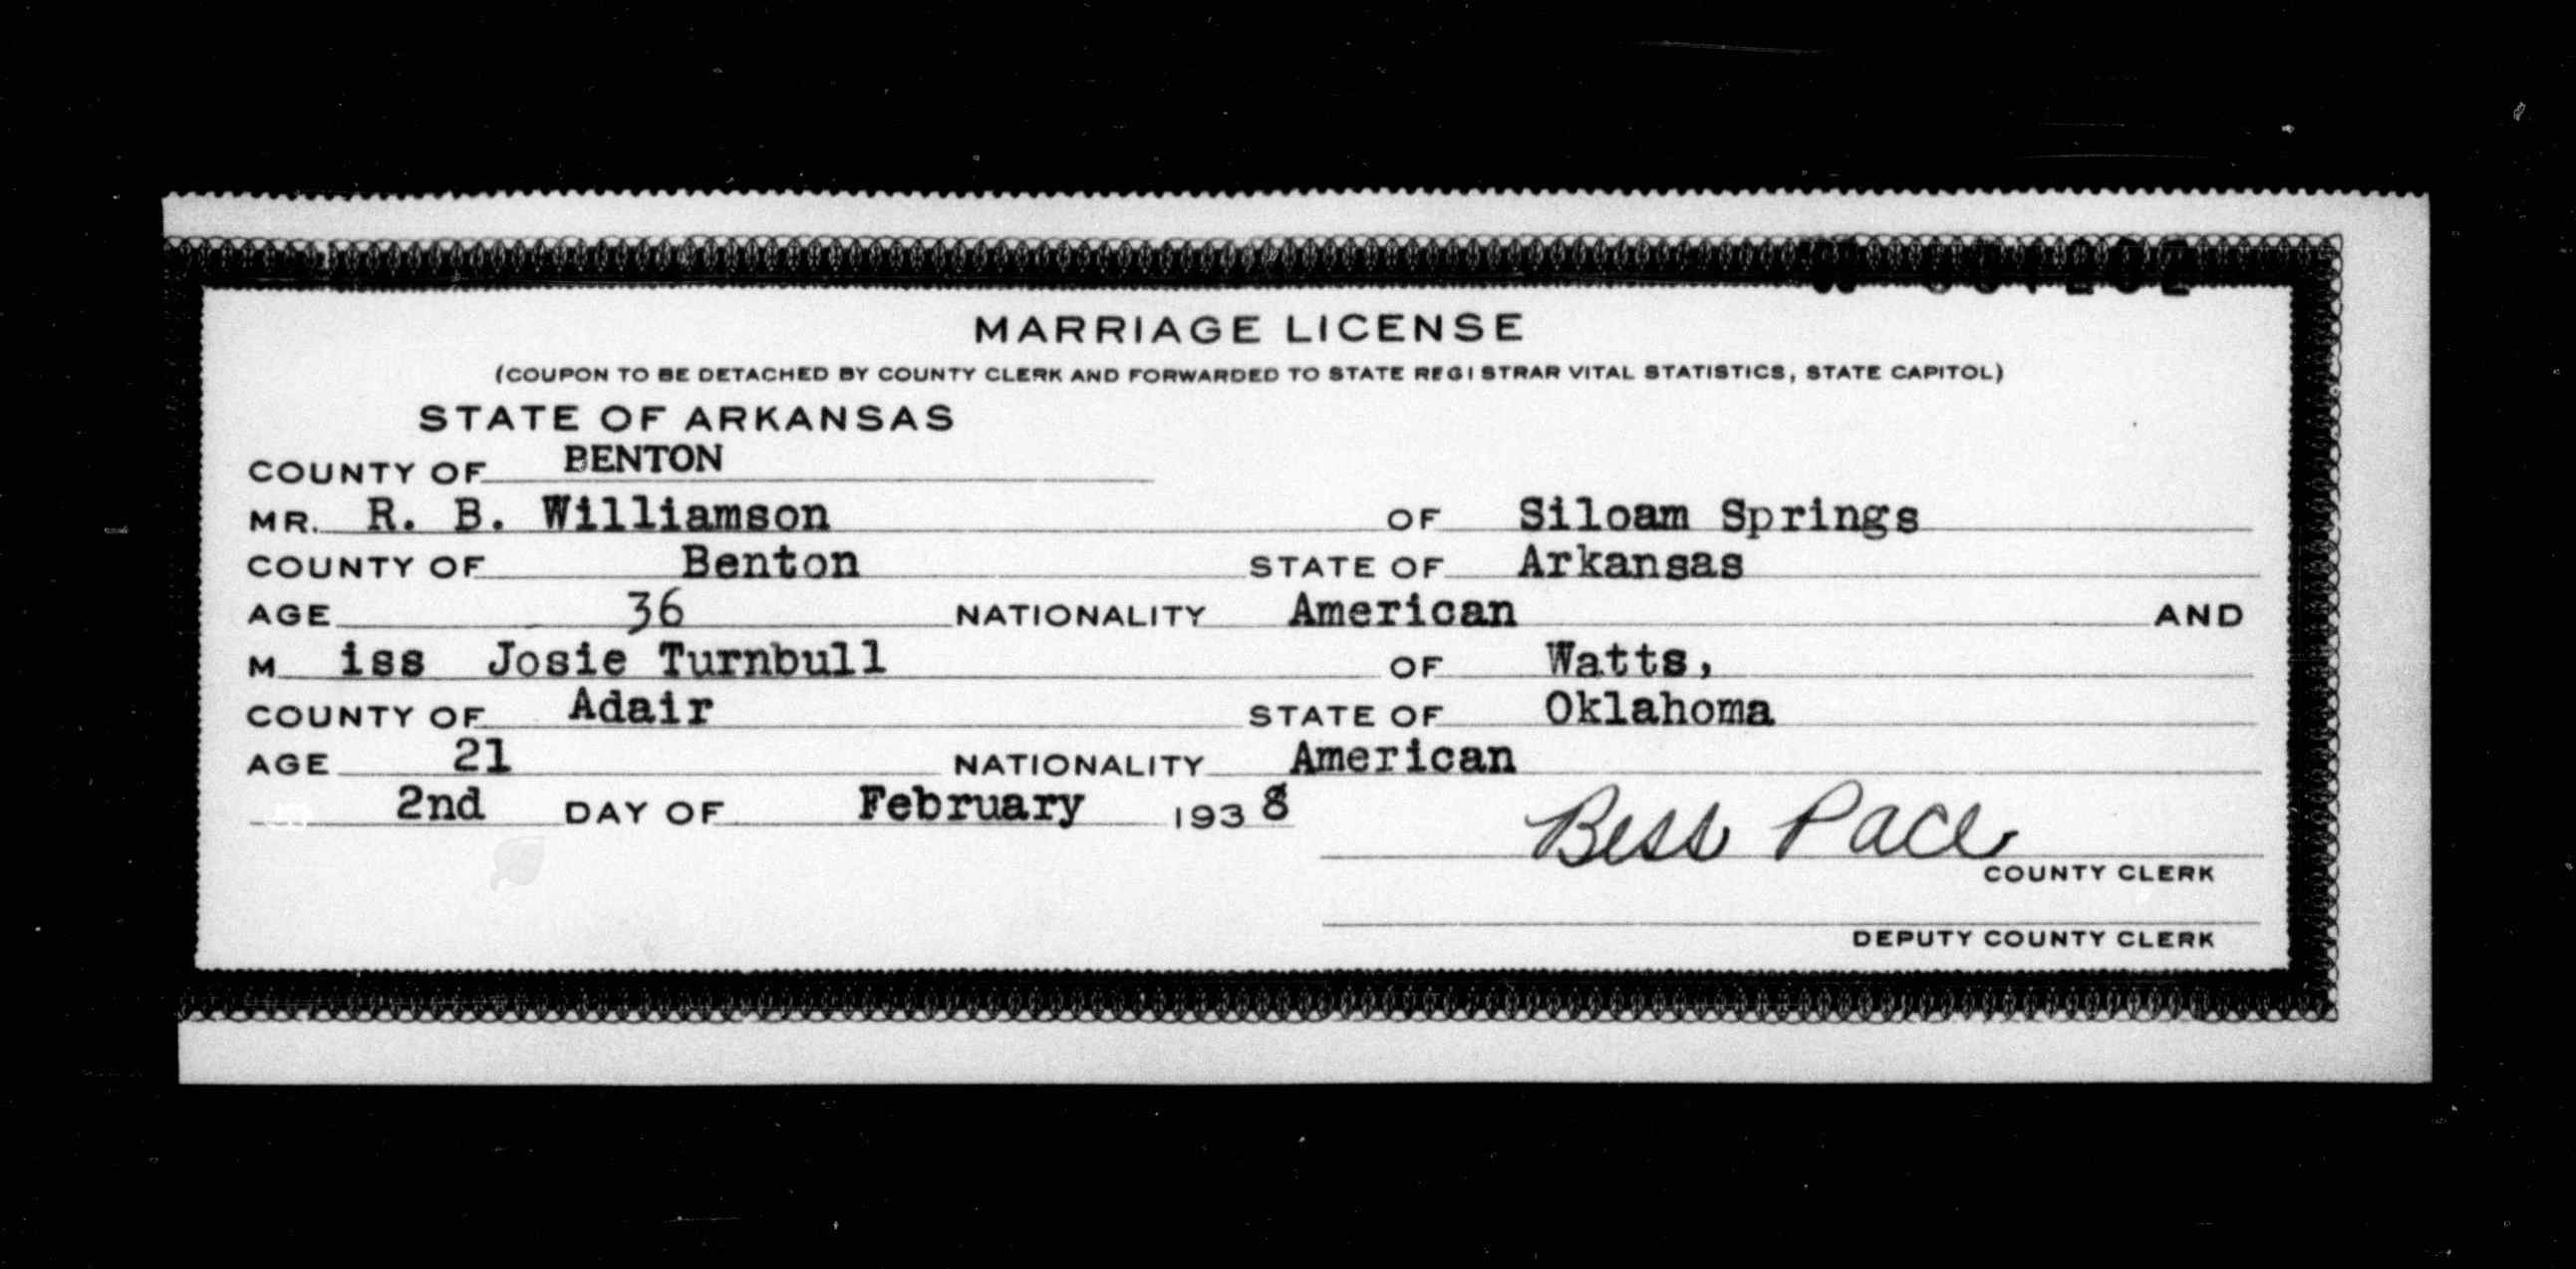 MARRIAGE LICENSE
(COUPON TO BE DETACHED BY COUNTY CLERK AND FORWARDED TO STATE REGISTRAR VITAL STATISTICS, STATE CAPITOL)
STATE OF ARKANSAS
COUNTY OF BENTON
MR. R. B. Williamson OF Siloam Springs
COUNTY OF Benton STATE OF Arkansas
AGE 36 NATIONALITY American AND
M iss Josie Turnbull OF Watts,
COUNTY OF Adair STATE OF Oklahoma
AGE 21 NATIONALITY American
2nd DAY OF February 1938
Bess Pace
COUNTY CLERK
DEPUTY COUNTY CLERK